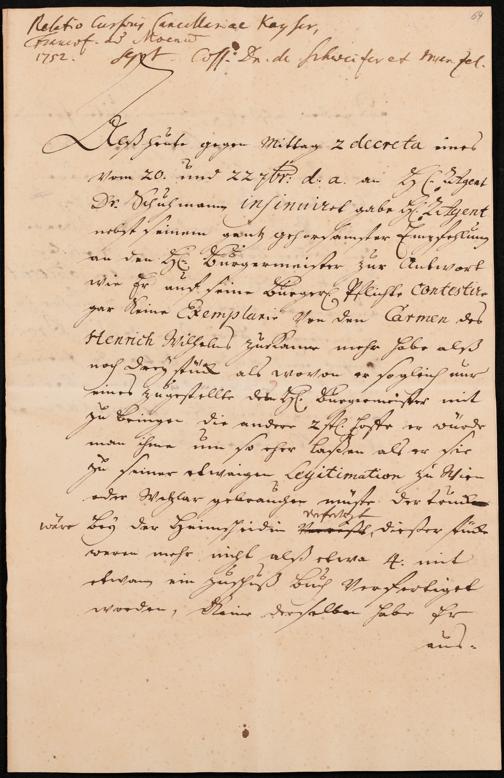 64
Relatio Cursoris Cancellariae Kayser,
Francof. ad Moenum
1752. Sept. Coss. Dn. de Schweizer et
Alß heute gegen Mittag 2 decreta eines
vom 20. und 22 7br: d: a. an H: Agent
Dr. Schuhmann insinuiret gabe H: Agent
nebst seinem gantz gehorsamster Empfehlung
an den H: Burgermeister zur Antwort
wie Er auf seine Burger Pflichte contestire
gar keine Exemplarie von den Carmen des
Henrich Wilhelms mehr habe alß
noch drey stück als wovon er sogleich nur
eines zugestellte den H: Burgermeister mit
zu bringen die andere 2 st: hoffe er würde
man ihme um so eher laßen als er sie
zu seiner etwaigen Legitimation zu Wien
oder Wetzlar gebrauchen müste
wäre bey der dießer stück
weren mehr nicht alß etwa 4. mit
etwann ein Buch Verfertiget
worden, Keine derselben habe Er
aus-